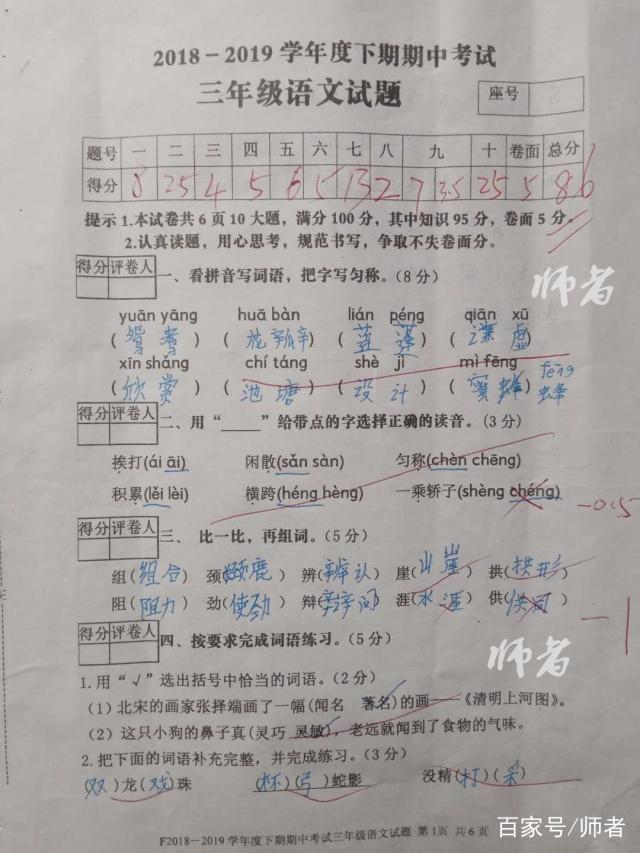 2018-2019学年度下期期中考试
三年级语文试题
座号
题号 一 二 三 四 五 六 七 八 九 十 卷面 总分
得分 8 25 4 5 6 5 13 2 7 3.5 25 5 86
提示 1.本试卷共6页10大题，满分100分，其中知识95分，卷面5分。
2.认真读题，用心思考，规范书写，争取不失卷面分。
得分 评卷人
一、看拼音写词语，把字写匀称。(8分)
师者
yuān yāng huā bàn lián péng qiān xū
(鸳鸯) (花瓣) (莲蓬) (谦虚)
xīn shǎng chí táng shè jì mì fēng
fēng
(欣赏) (池塘) (设计) (蜜蜂)
蜂
得分 评卷人
二、用“___”给带点的字选择正确的读音。(3分)
挨打(ái āi) 闲散(sǎn sàn) 匀称(chèn chēng)
积累(lěi lèi) 横跨(héng hèng) 一乘轿子(shèng chéng)
-0.5
得分 评卷人
三、 比一比，再组词。(5分)
组(组合) 颈( 鹿) 辨(辨认) 崖(山崖) 拱(拱形)
阻(阻力) 劲(使劲) 辩( 问) 涯(水涯) 供( )
-1
得分 评卷人
四、按要求完成词语练习。(5分)
师者
1.用“√”选出括号中恰当的词语。(2分)
(1)北宋的画家张择端画了一幅(闻名 著名)的画——《清明上河图》。
(2)这只小狗的鼻子真(灵巧 灵敏)，老远就闻到了食物的气味。
2.把下面的词语补充完整，并完成练习。(3分)
(双)龙(戏)珠 (杯)(弓)蛇影 没精(打)(采)
F2018-2019学年度下期期中考试三年级语文试题 第1页 共6页
百家号/师者